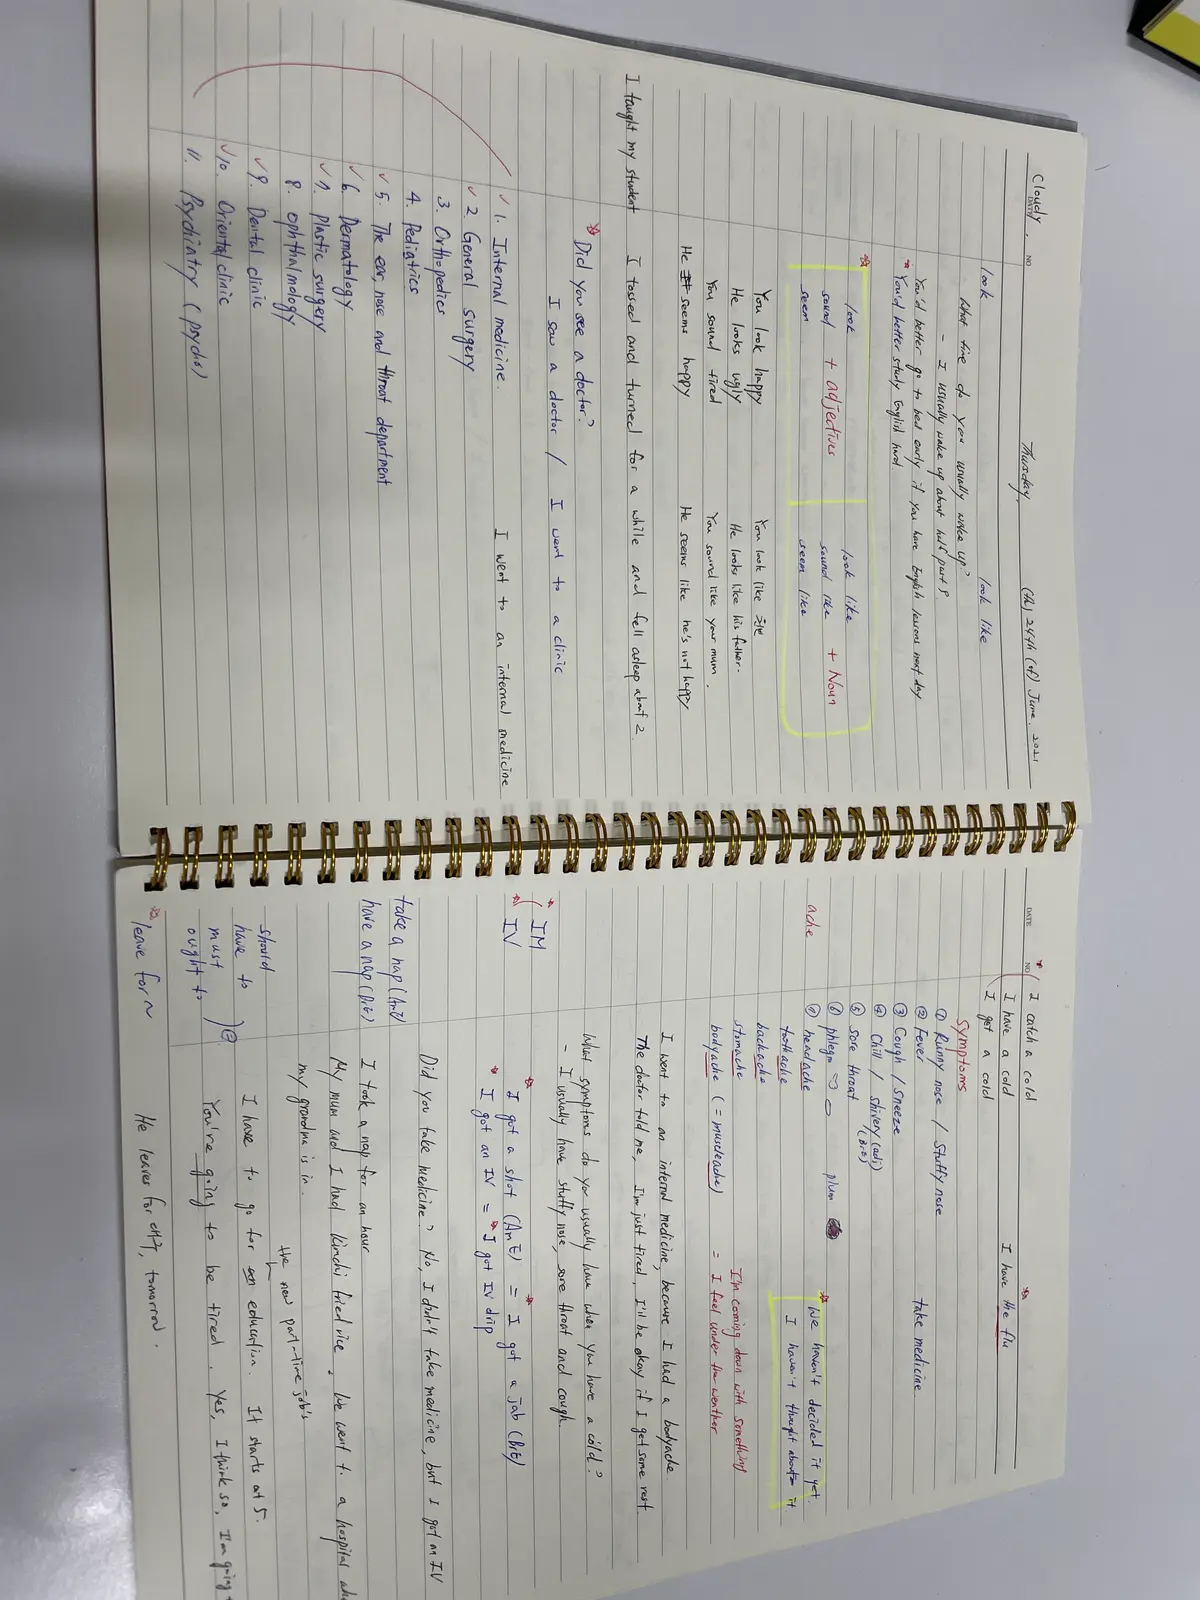 Cloudy
DATE . NO
Thursday, (th) 24th (of) June. 2021
look look like
What time do you usually wake up?
- I usually wake up about half past 9
You'd better go to bed early if you have English lessons next day
You'd better study English hard
look look like
sound + adjectives sound like + Noun
seem seem like
You look happy You look like
He looks ugly He looks like his father.
You sound tired You sound like your mum.
He seems happy He seems like he's not happy
I taught my student I tossed and turned for a while and fell asleep about 2.
Did you see a doctor?
I saw a doctor / I went to a clinic
1. Internal medicine. I went to an internal medicine
2. General surgery
3. Orthopedics
4. Pediatrics
5. The ear, nose and throat department
6. Dermatology
7. Plastic surgery
8. ophthalmology
9. Dental clinic
10. Oriental clinic
11. Psychiatry (psycho)
DATE NO
I catch a cold I have the flu
I have a cold
I got a cold
Symptoms
① Runny nose / Stuffy nose
② Fever take medicine
③ Cough / sneeze
④ Chill / shivery (adj)
(BrE)
⑤ sore throat
⑥ phlegm plum
We haven't decided it yet.
ache ⑦ headache I haven't thought about it
toothache
backache
stomache I'm coming down with something
bodyache (= muscleache) = I feel under the weather
I went to an internal medicine, because I had a bodyache.
The doctor told me, I'm just tired, I'll be okay if I get some rest.
What symptoms do you usually have when you have a cold?
- I usually have stuffy nose, sore throat and cough.
IM I got a shot (AmE) = I got a jab (BrE)
IV I got an IV = I got IV drip
Did you take medicine? No, I didn't take medicine, but I got an IV
take a nap (AmE)
have a nap (BrE) I took a nap for an hour
My mum and I had kimchi fried rice, We went to a hospital
my grandma is in.
the new part-time job's
should
have to I have to go for education. It starts at 5.
must
ought to You're going to be tired. Yes, I think so, I'm going
leave for~ He leaves for tomorrow.